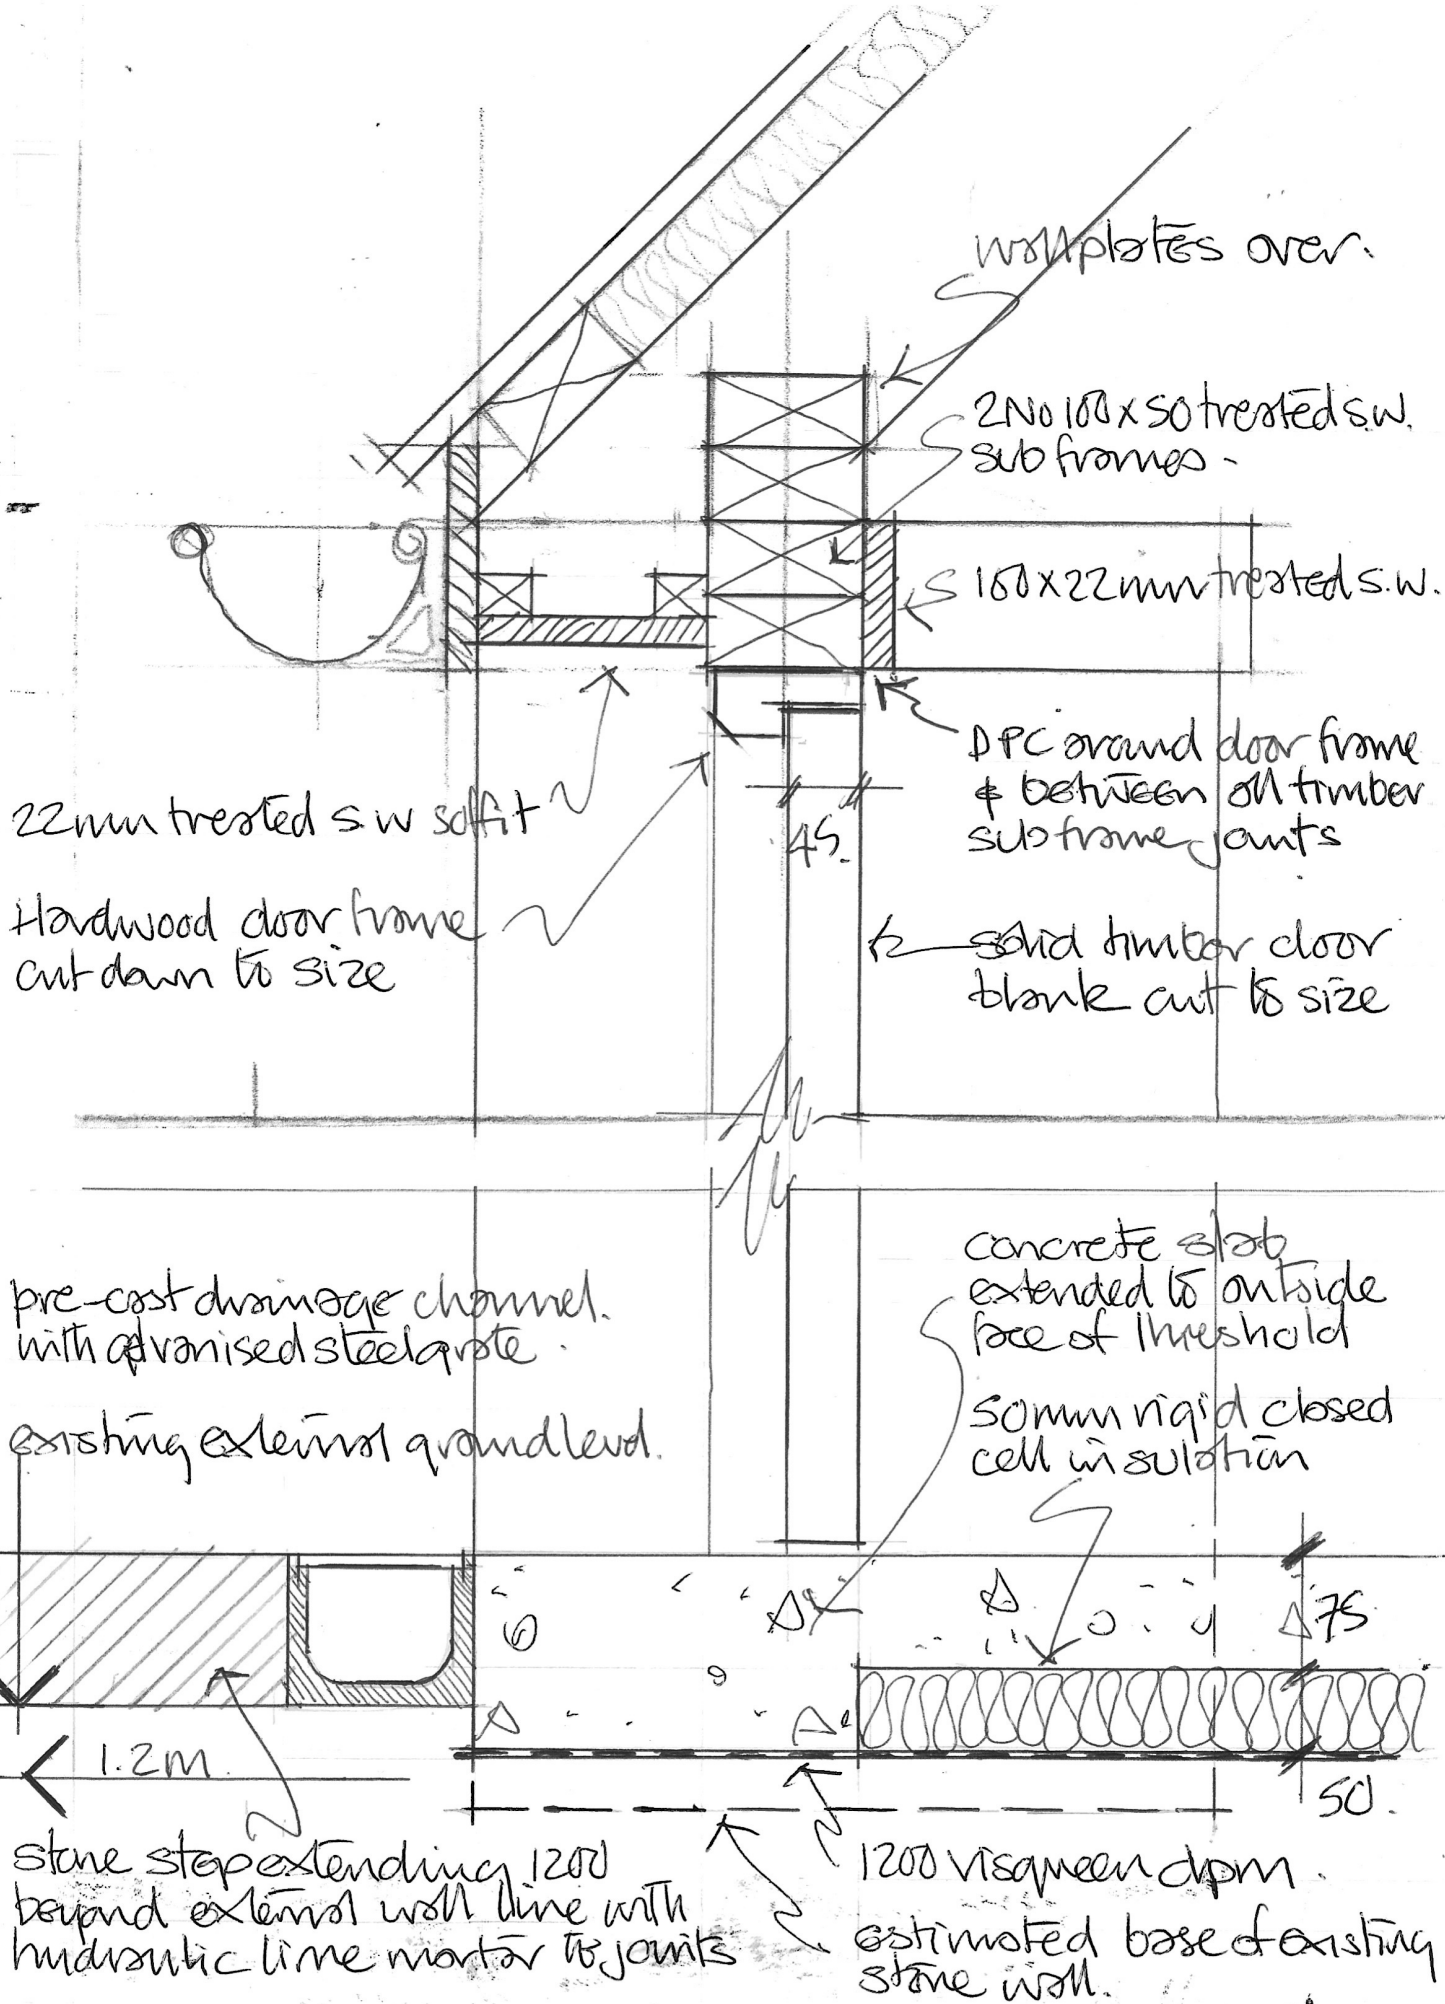 wallplates over.
2No 100 x 50 treated s.w.
sub frames -
100 x 22mm treated s.w.
DPC around door frame
& between all timber
subframe joints
22mm treated s.w soffit
45.
Hardwood door frame
cut down to size
solid timber door
blank cut to size
concrete slab
extended to outside
face of threshold
pre-cast drainage channel.
with galvanised steel grate.
50mm rigid closed
cell insulation
existing external ground level.
75
1.2m.
50.
stone step extending 1200
beyond external wall line with
hydraulic lime mortar to joints
1200 visqueen dpm.
estimated base of existing
stone wall.